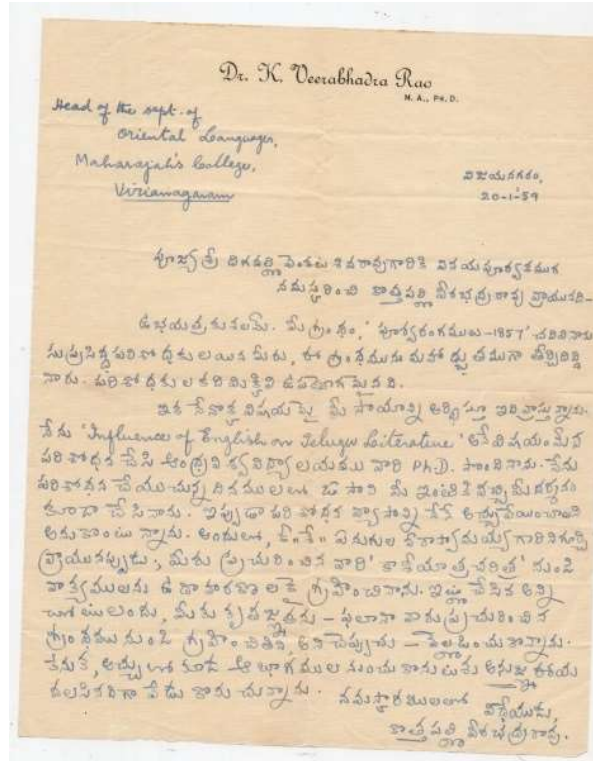 Dr. K. Veerabhadra Rao
M. A., PH. D.
Head of the Dept. of
Oriental Languages,
Maharajah's College,
Vizianagaram
విజయనగరం,
20-1-'59
పూజ్యశ్రీ దిగవల్లి వెంకట శివరావుగారికి వినయపూర్వకముగ
నమస్కరించి కొత్తపల్లి వీరభద్రరావు వ్రాయునది—
ఉభయత్ర కుశలమ్. మీ గ్రంథం, 'పూర్వరంగములు-1857' చదివినాను
సుప్రసిద్ధ పరిశోధకులయిన మీరు, ఈ గ్రంథమును మహాద్భుతముగా తీర్చిదిద్ది
నారు. పరిశోధకులకది మిక్కిలి ఉపయోగమైనది.
ఇక నేనొక్క విషయమై మీ సాయాన్ని అర్థిస్తూ ఇది వ్రాస్తున్నాను.
నేను 'Influence of English on Telugu Literature' అనే విషయం మీద
పరిశోధన చేసి ఆంధ్ర విశ్వవిద్యాలయము వారి Ph.D. పొందినాను. నేను
పరిశోధన చేయుచున్న దినములలో ఓ సారి మీ ఇంటికి వచ్చి మీ దర్శనం
కూడా చేసినాను. ఇప్పుడా పరిశోధన వ్యాసాన్ని నేనే అచ్చువేయించాలని
అనుకొంటున్నాను. అందులో, కీ.శే. ఏనుగుల వీరాస్వామయ్య గారినిగూర్చి
వ్రాయునప్పుడు, మీరు ప్రచురించిన వారి 'కాశీయాత్ర చరిత్ర' నుండి
వాక్యములను ఉదాహరణలకై గ్రహించినాను. ఇట్లు చేసిన అన్ని
చోటులందు, మీకు కృతజ్ఞతను — ఫలానా వారు ప్రచురించిన
గ్రంథము నుండి గ్రహించితిని, అని చెప్పుచు —
కనుక, అచ్చులో కూడ ఆ భాగముల నుంచుకొనుటకు అనుజ్ఞ ఈయ
వలసినదిగా వేడుకొనుచున్నాను.
నమస్కారములతో
విధేయుడు,
కొత్తపల్లి వీరభద్రరావు.